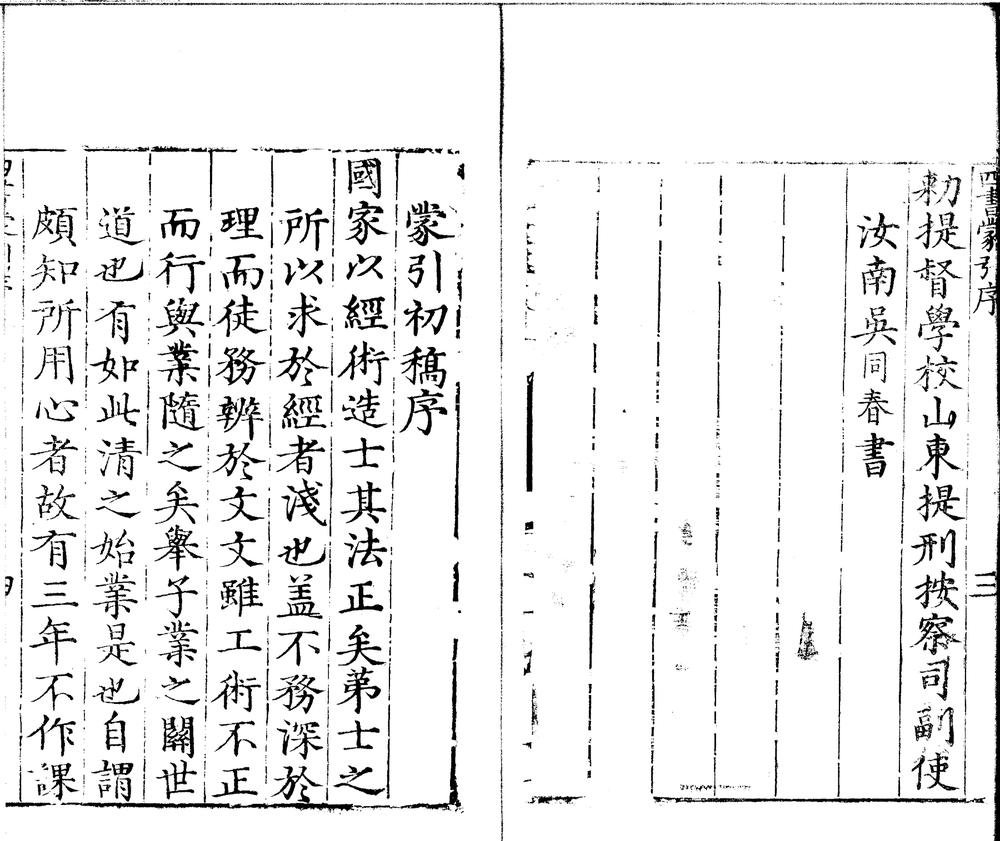 四書蒙引序
三
勑提督學校山東提刑按察司副使
汝南吳同春書
蒙引初稿序
國家以經術造士其法正矣第士之
所以求於經者淺也盖不務深於
理而徒務辨於文文雖工術不正
而行與業隨之矣舉子業之關世
道也有如此清之始業是也自謂
頗知所用心者故有三年不作課